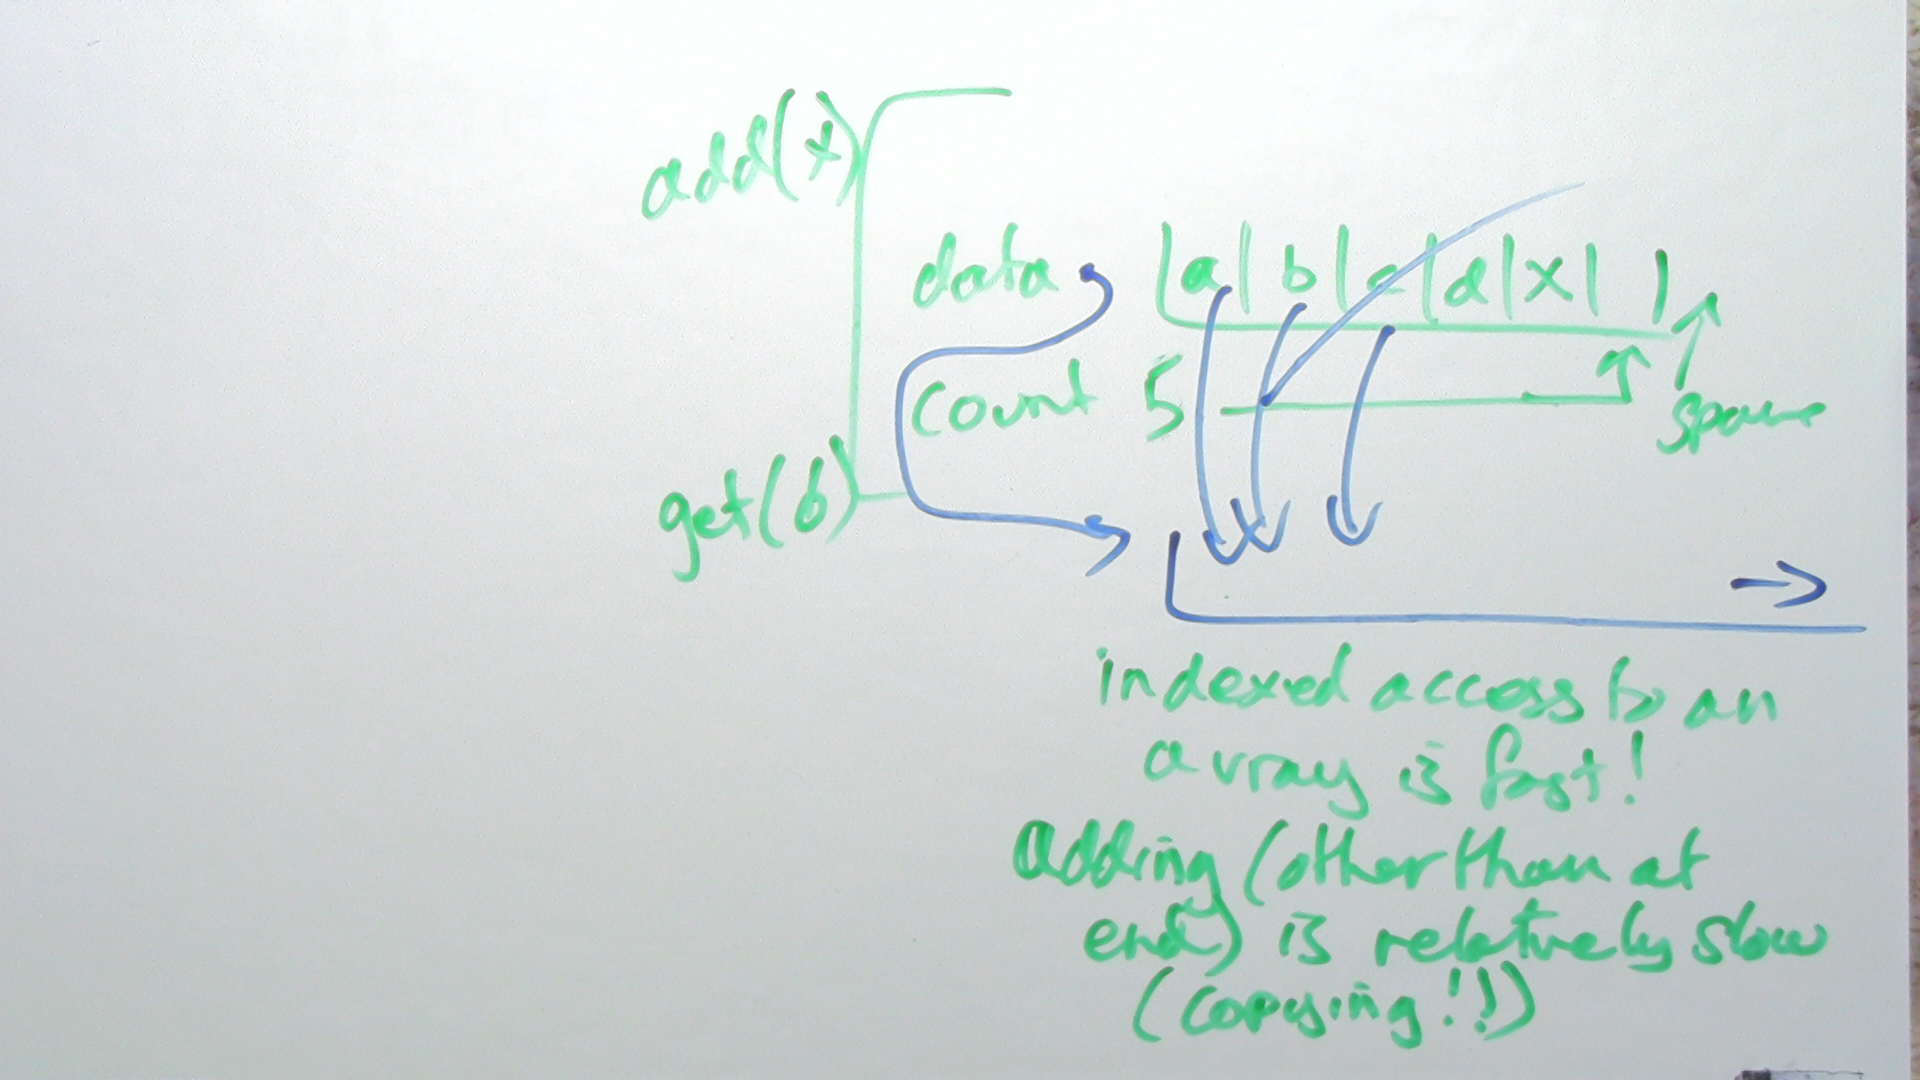 add(x)
data |a|b|c|d|x| |
count 5
spare
get(6)
indexed access to an
array is fast!
Adding (other than at
end) is relatively slow
(copying!!)